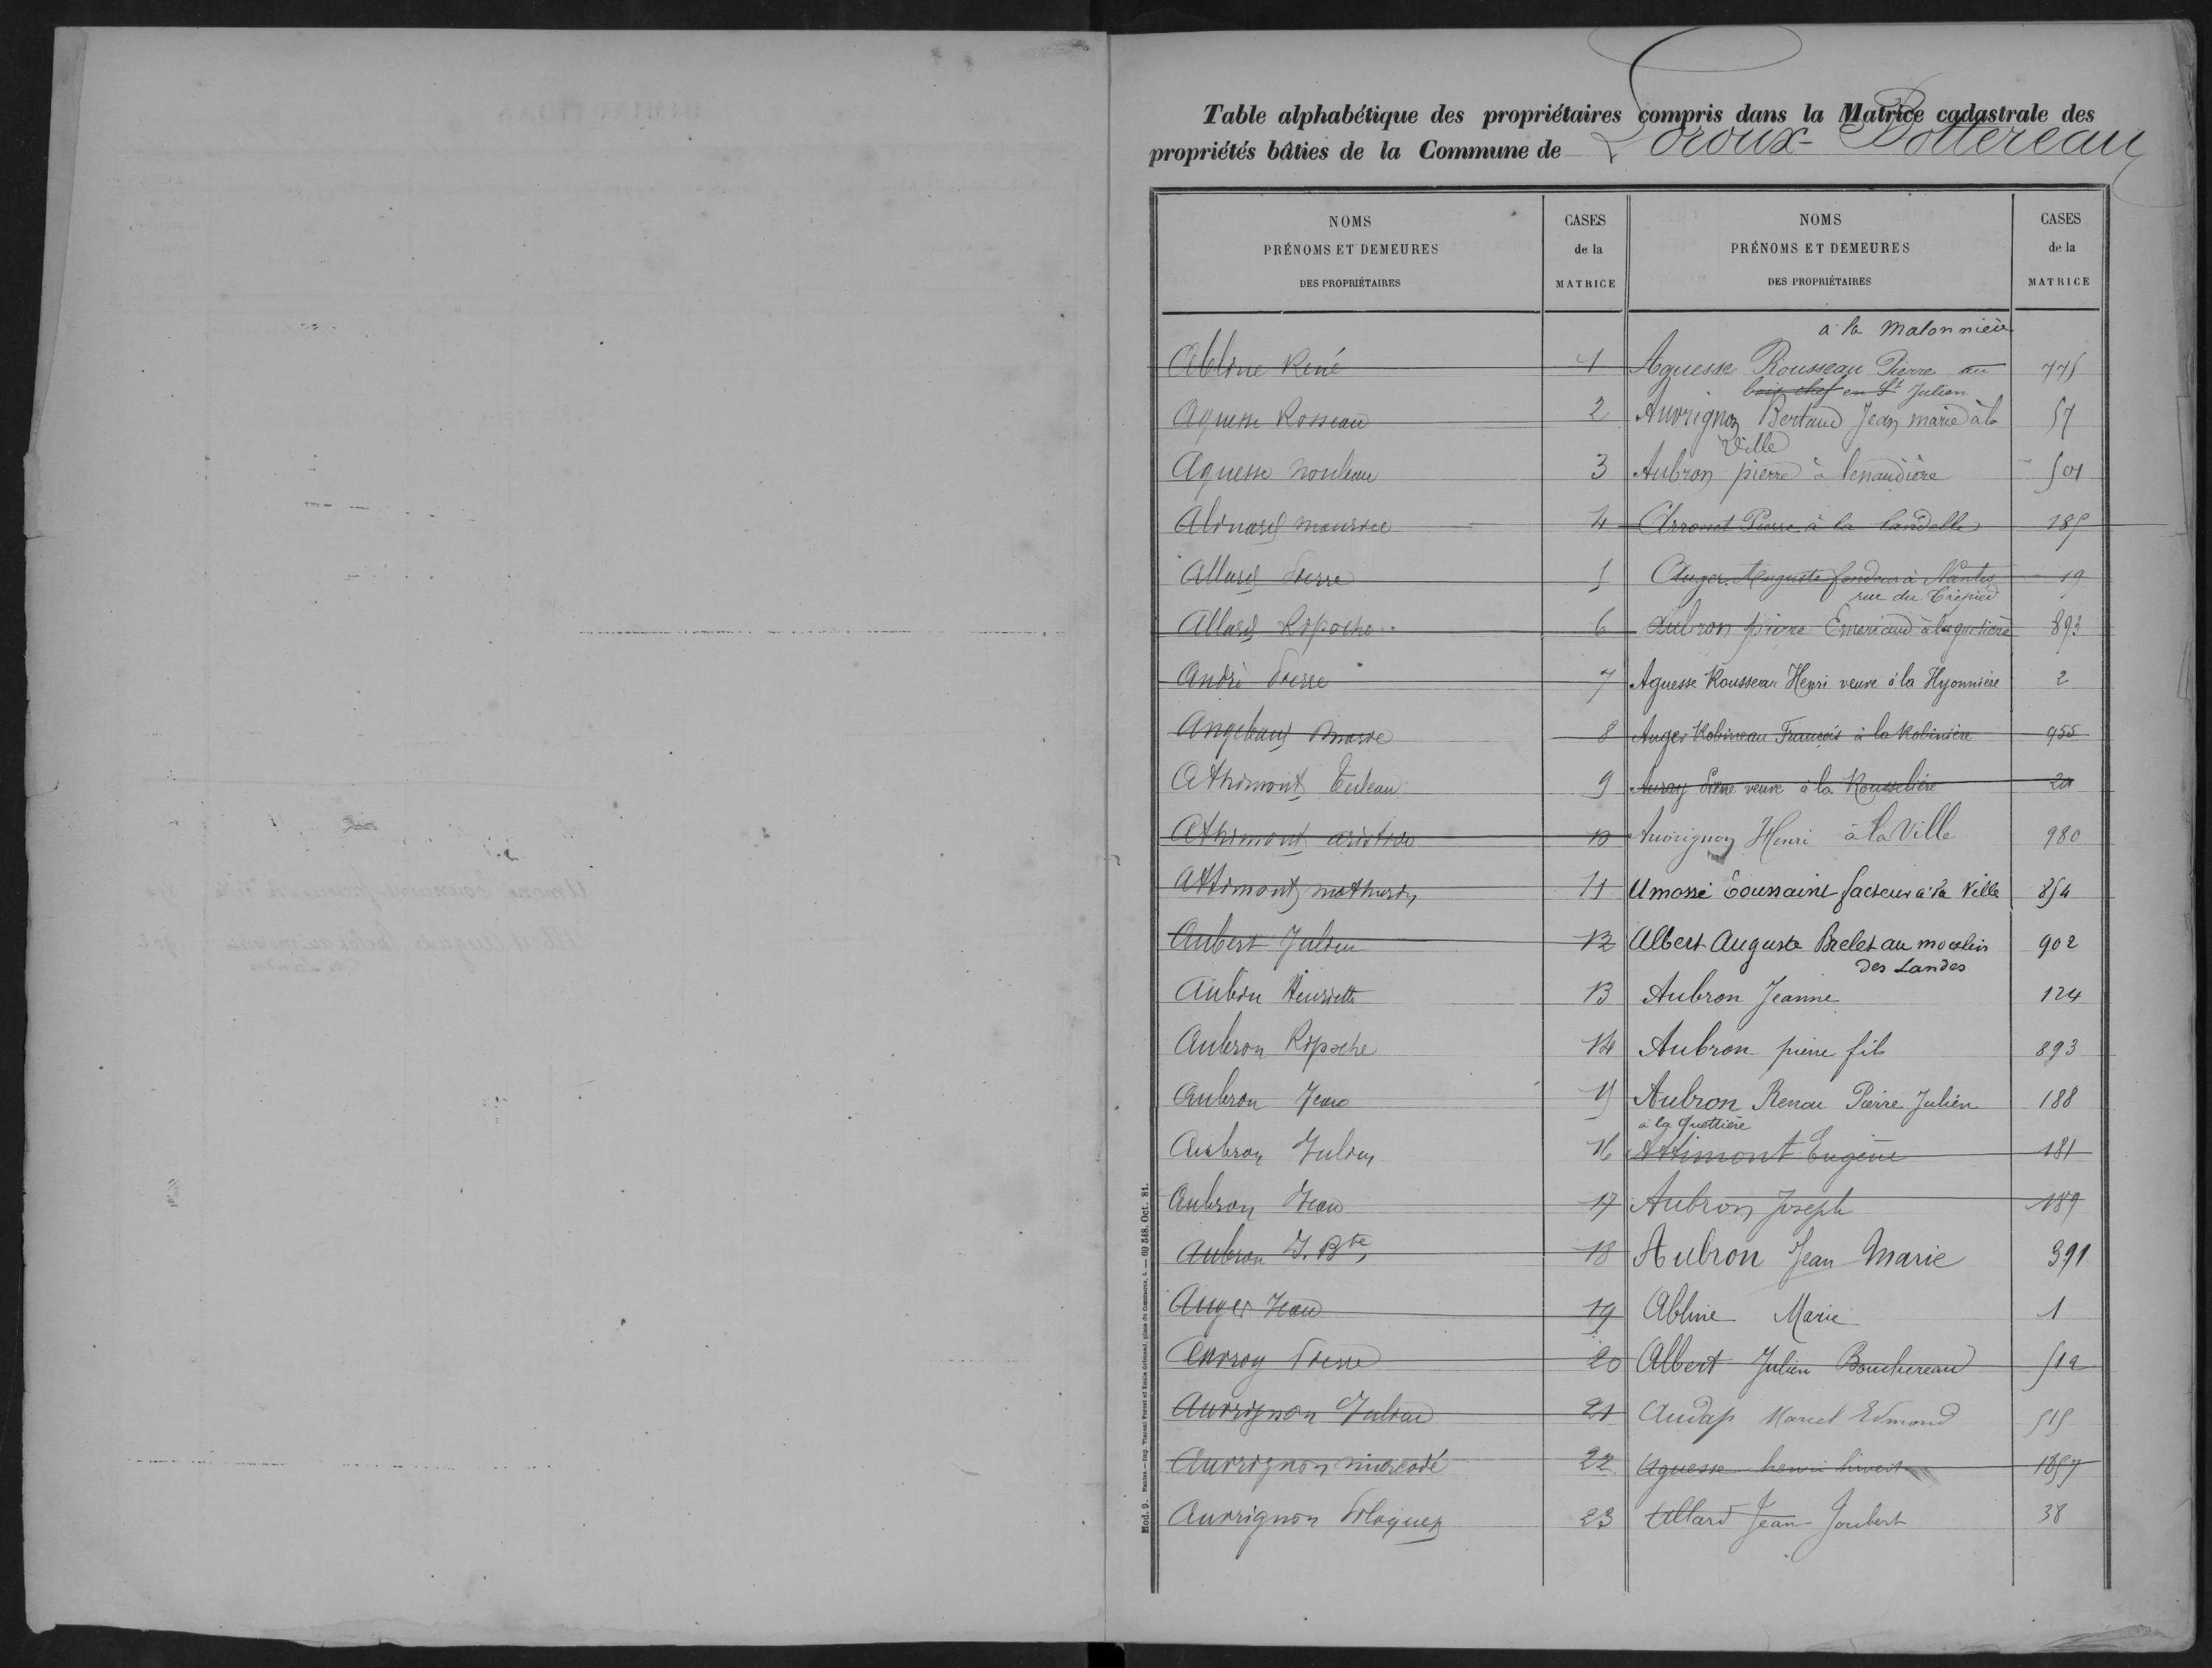 Table alphabétique des propriétaires compris dans la Matrice cadastrale des
propriétés bâties de la Commune de Loroux-Bottereau
NOMS
PRÉNOMS ET DEMEURES
DES PROPRIÉTAIRES
CASES
de la
MATRICE
NOMS
PRÉNOMS ET DEMEURES
DES PROPRIÉTAIRES
CASES
de la
MATRICE
Abline René 1
Aguesse Rosseau 2
Aguesse Nouleau 3
Maurice 4
Allard Pierre 5
Allard Ripoche 6
André Pierre 7
Angebaud Marie 8
Athimont Tuleau 9
Athimont aristide 10
Athimont mathurin 11
Aubert Julien 12
Aubin Henriette 13
Aubron Ripoche 14
Aubron Jean 15
Aubron Julien 16
Aubron Jean 17
Aubron J. Bte 18
Auger Jean 19
Auray Pierre 20
Auvrignon Julien 21
Auvrignon 22
Auvrignon 23
à la Malonnière
Aguesse Rousseau Pierre au 775
bois chef en St Julien
Auvrignon Bertaud Jean marie à la 57
Ville
Aubron pierre à lenaudière 501
Arronet Pierre à la landelle 185
Auger Auguste fondeur à Nantes 19
rue du Trepied
Aubron pierre Emeriaud à la quetière 893
Aguesse Rousseau Henri veuve à la Hyonnière 2
Auger Robineau François à la Robinière 955
Auray Pierre veuve à la Rousselière 20
Auvrignon Henri à la Ville 980
Amossé Toussaint facteur à la Ville 854
Albert Auguste Brelet au moulin 902
des Landes
Aubron Jeanne 124
Aubron pierre fils 893
Aubron Renou Pierre Julien 188
à la Quettière
Attimont Eugène 181
Aubron Joseph 189
Aubron Jean Marie 391
Abline Marie 1
Albert Julien Bouchereau 512
Audap Marcel Edmond 515
Aguesse henri 1857
Allard Jean Joubert 38
Mod. 9. Nantes. — Imp. Vincent Forest et Émile Grimaud, place du Commerce, 4. — 60 348. Oct. 81.